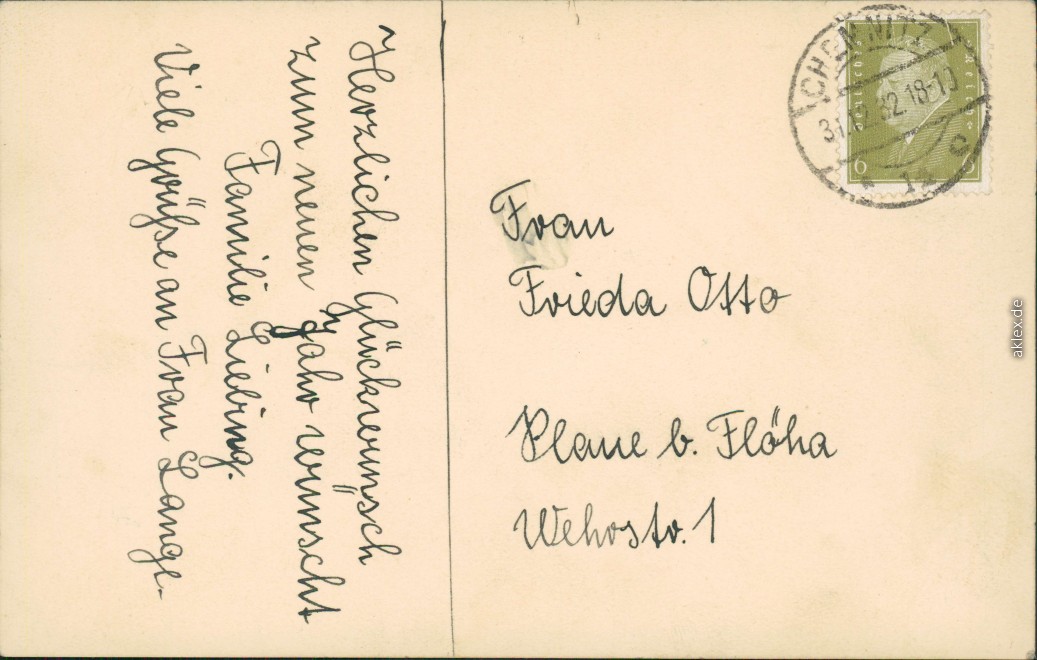 Herzlichen Glückwunsch
zum neuen Jahr wünscht
Familie Liebing.
Viele Grüße an Frau Lange.
Frau
Frieda Otto
Plaue b. Flöha
Wehrstr. 1
CHEMNITZ
31.12.32.18-19
1a
c
Deutsches Reich
6
aklex.de